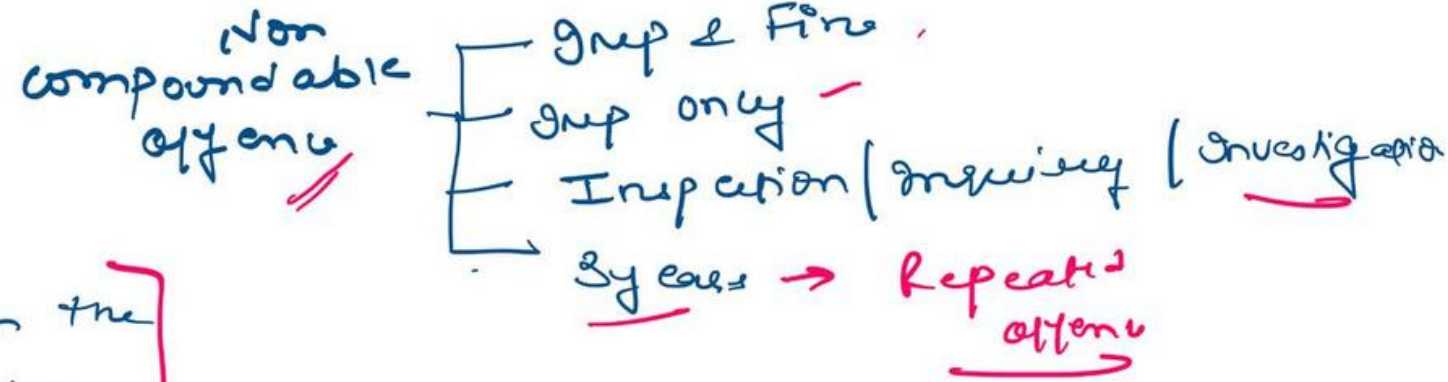 Non
compoundable
offence
Imp & Fine.
Imp only
Inspection / Inquiry / Investigation
3 years → Repeated
offence
the